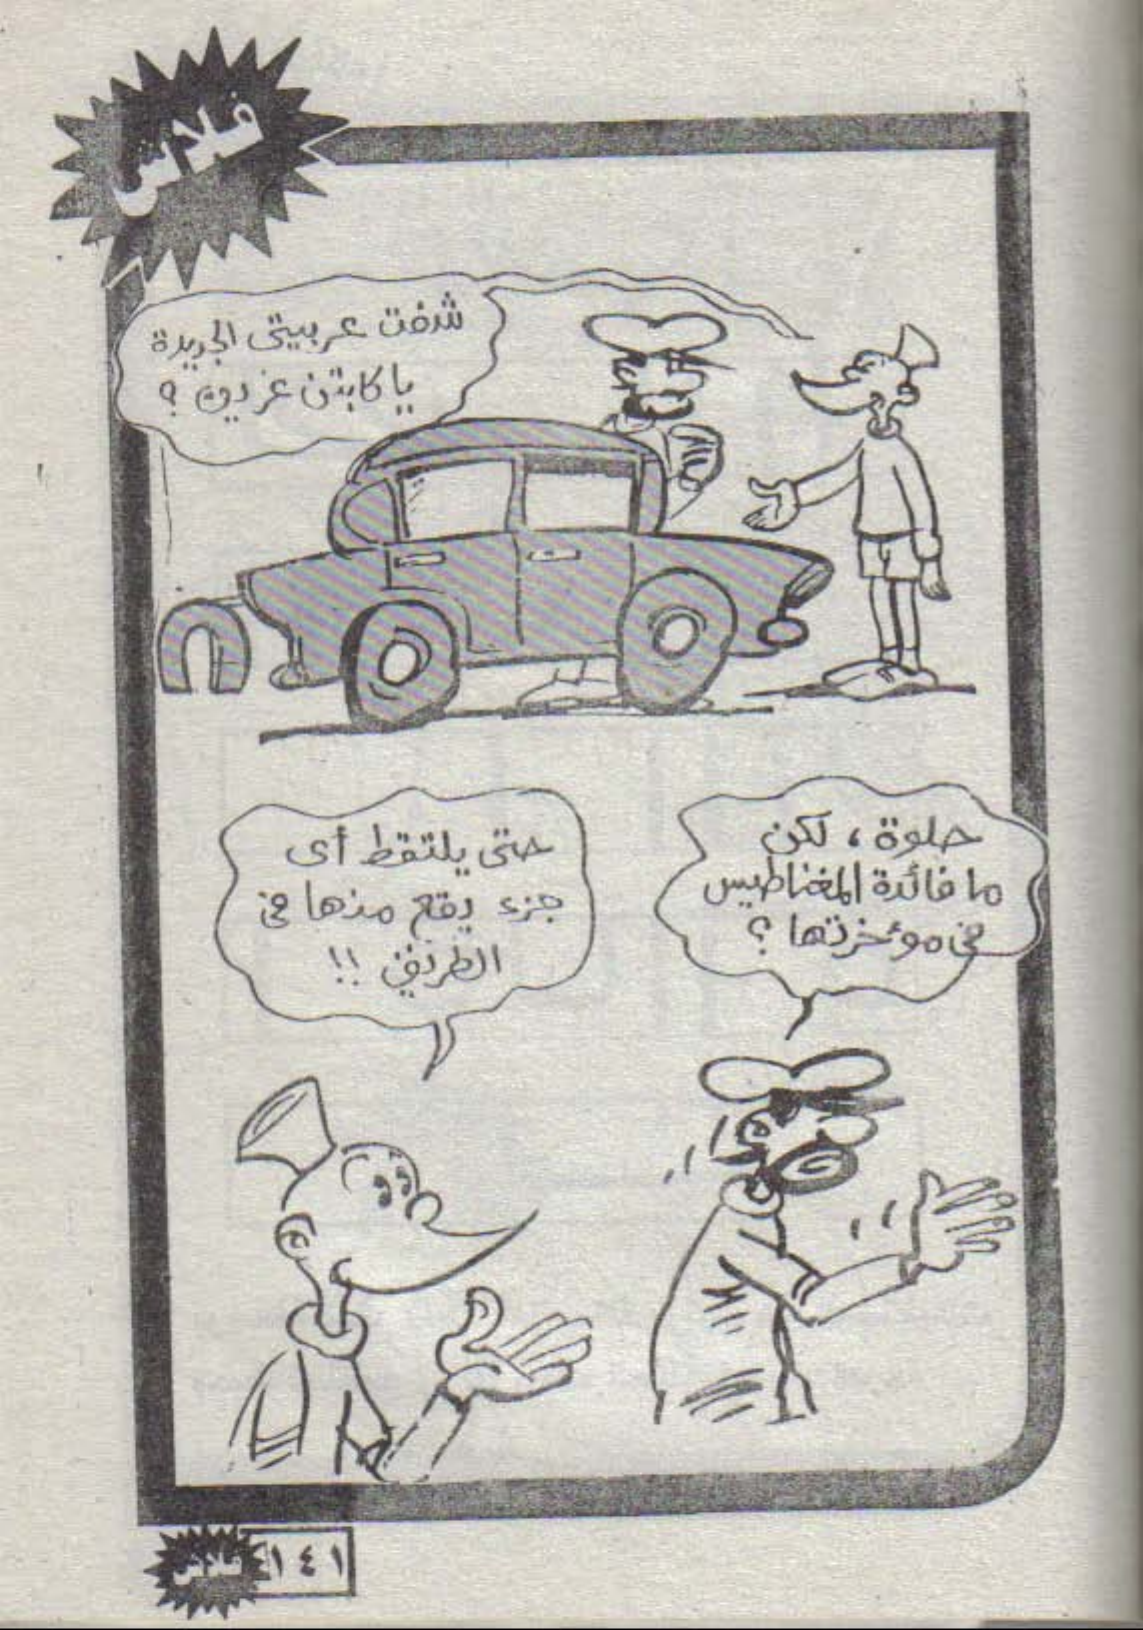 فلاش
شفت عربيتى الجديدة
يا كابتن عزوز ؟
حلوة ، لكن
ما فائدة المغناطيس
فى مؤخرتها ؟
حتى يلتقط أى
جزء يقع منها فى
الطريق !!
فلاش ١٤١